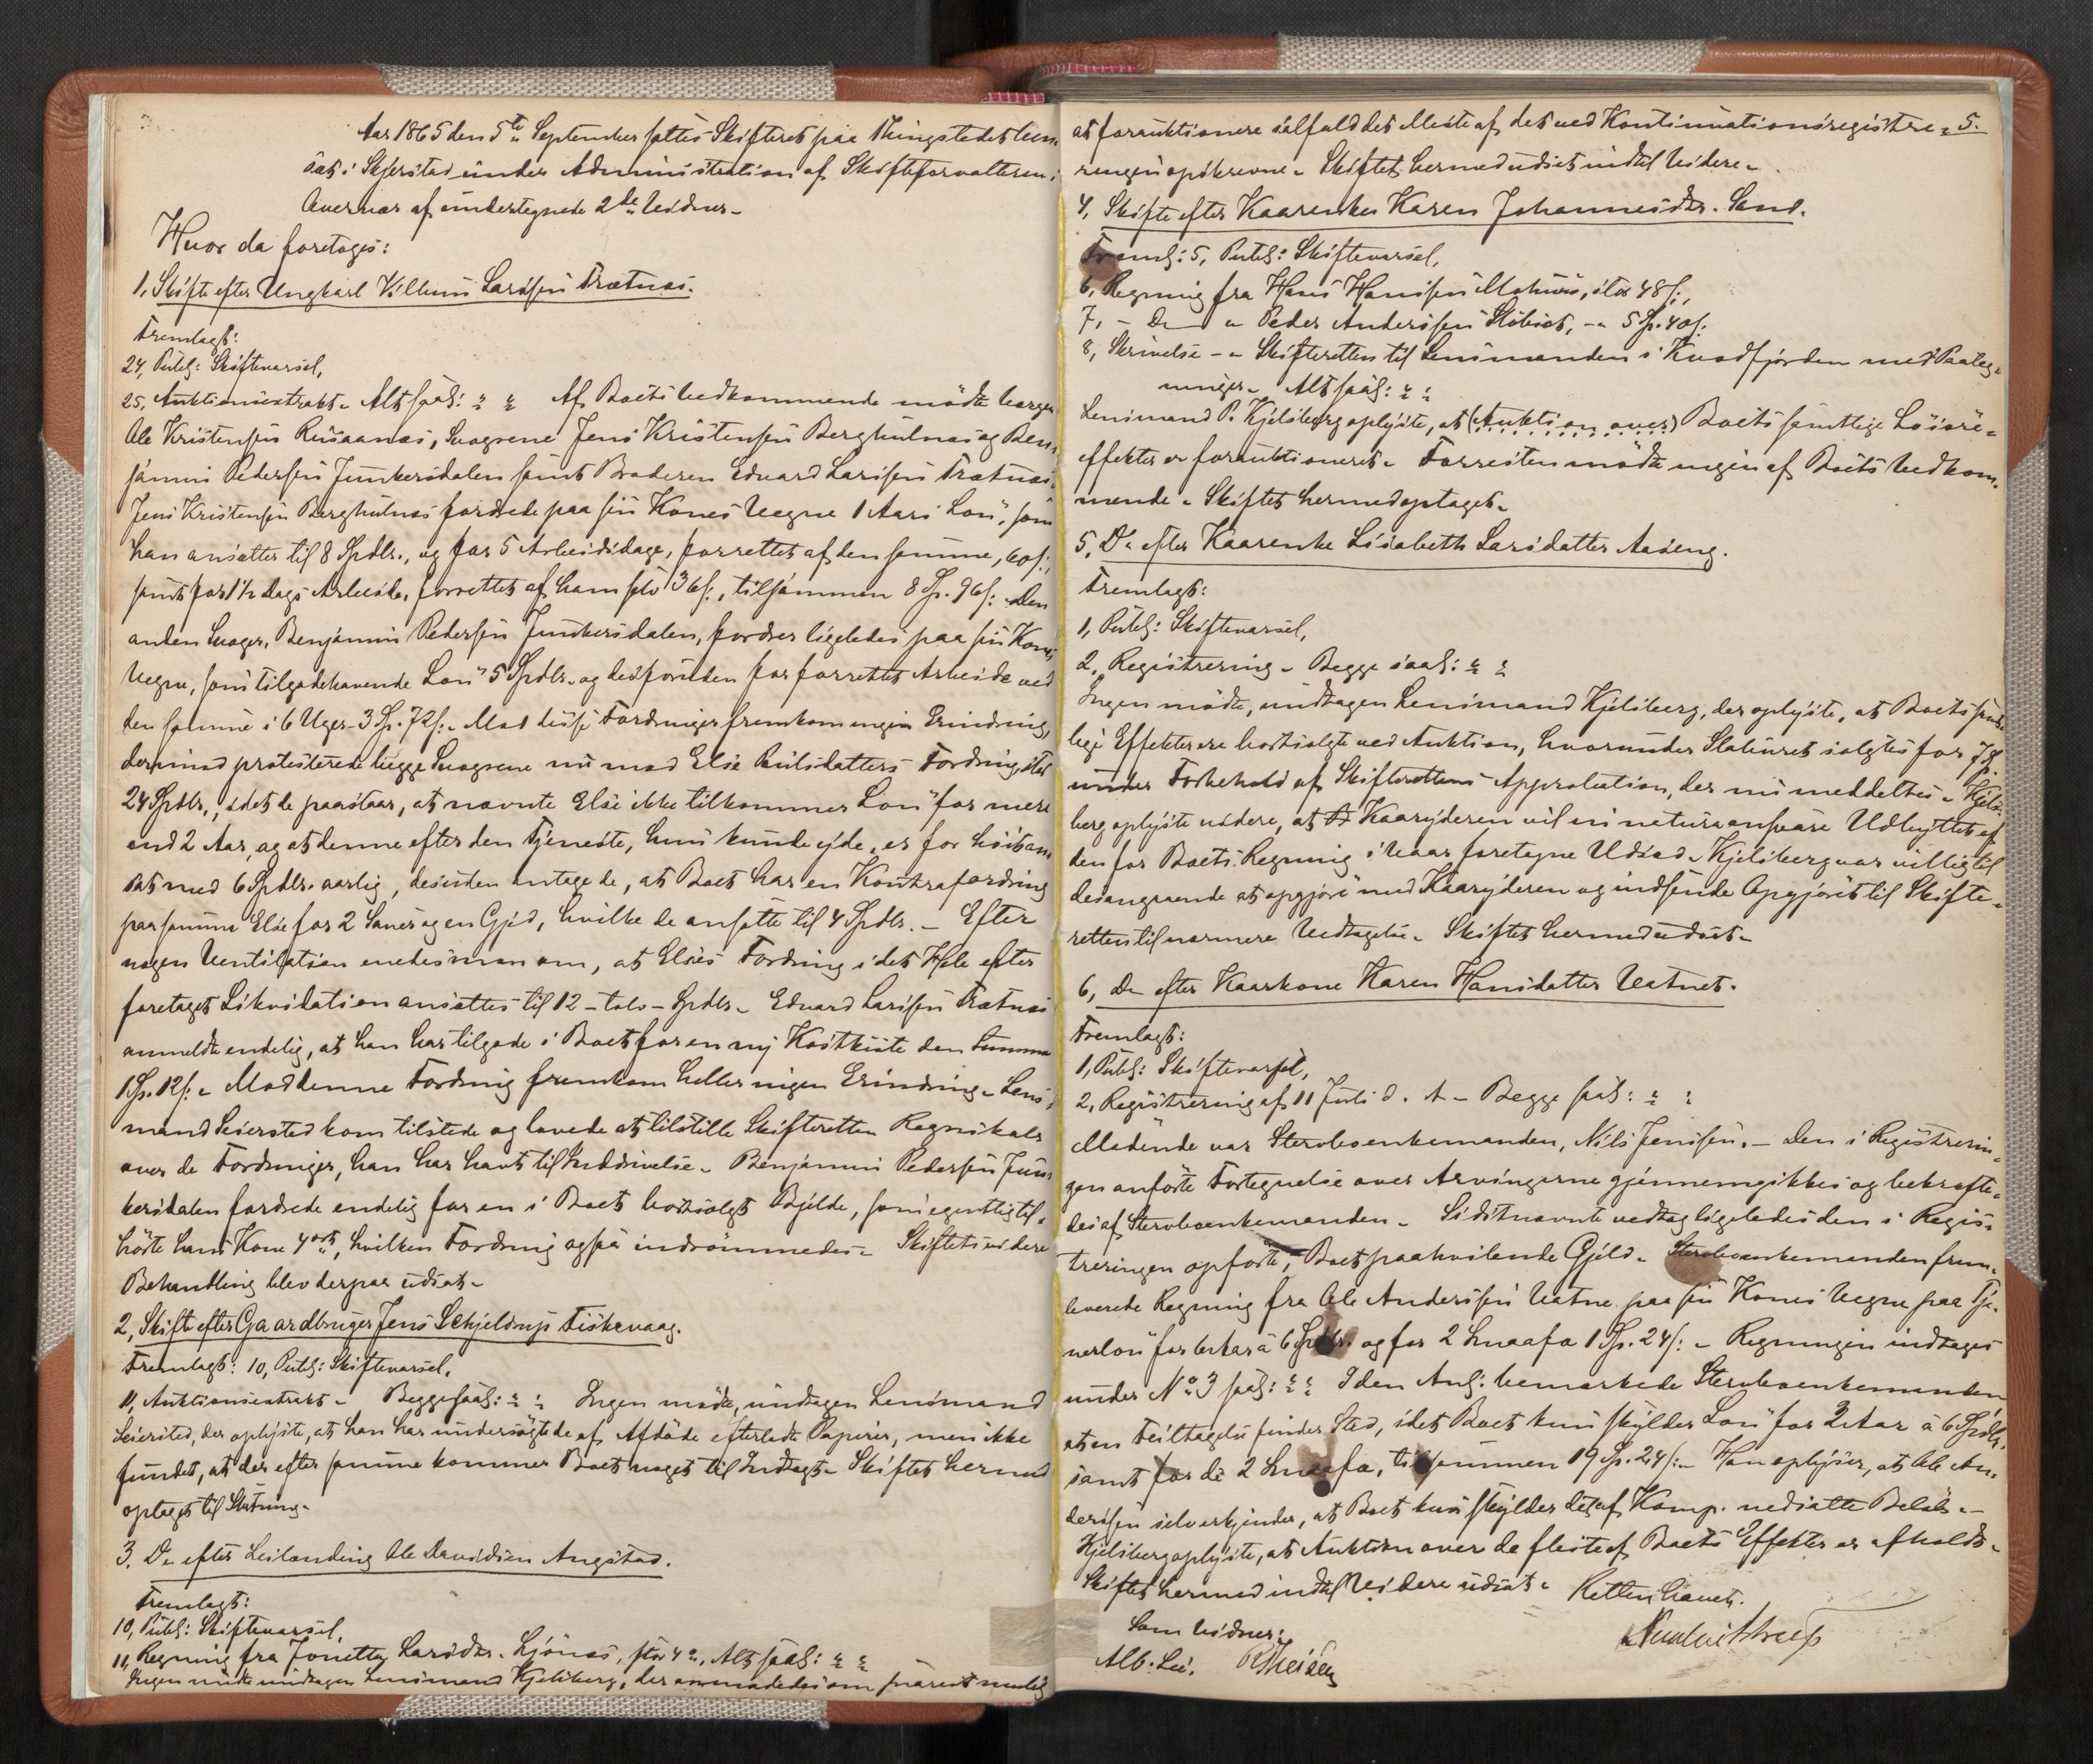 Aar 1865 den 5te September sattes Skifteret paa Thingstedet Leen-
sæt i Skjerstad under Administration af Skifteforvalteren i
Overvær af undertegnede 2de Vidner-
Hvor da foretoges:
1, Skifte efter Ungkarl Villum Larssen Trætnæs.
Fremlagt:
24, Publ: Skiftevarsel,
25, Auktionsextrakt. Alt saal: Af Boets Vedkommende mødte
Ole Kristensen Rusaanæs, Svogrene Jens Kristensen Berghulnæs og Ben-
jamin Pedersen Junkersdalen samt Broderen Edvard Larssen Trætnæs.
Jens Kristensen Berghulnæs fordrede paa sin Kones Vegne 1 Aars Løn, som
han ansætter til 8 Spdlr., og for 5 Arbeidsdage, forrettet af den samme, 60 s:,
samt for 1½ Dags Arbeide, forrettet af ham selv 36 s:, tilsammen 8 Sp. 96 s: Den
anden Svoger, Benjamin Pedersen Junkersdalen, fordrer ligeledes paa sin Kones
Vegne, som tilgodehavende Løn 5 Spdlr. og desforuden for forrettet Arbeide ved
den samme i 6 Uger - 3 Sp. 72 s: Mod disse Fordringer fremkom ingen Erindring,
derimod protesterede begge Svogrene nu mod Else Pulsdatters Fordring, stor
24 Spdlr., idet de paastaar, at nævnte Else ikke tilkommer Løn for mere
end 2 Aar, og at denne efter den Tjeneste, hun kunde yde, er for høit an-
sat med 6 Spdlr. aarlig, desuden antog de, at Boet har en Kontrafordring
paa samme Else for 2 Sauer og en Gjed, hvilke de ansatte til 4 Spdlr. - Efter
nogen Ventilation enedes man om, at Elses Fordring i det Hele efter
foretaget Likvidation ansættes til 12 - tolv - Spdlr - Edvard Larssen Trætnæs
anmeldte endelig, at han har tilgode i Boet for en ny Kostkiste den Summa
1 Sp. 12 s: - Mod denne Fordring fremkom heller ingen Erindring - Lens-
mand Seiersted kom tilstede og lovede at tilstille Skifteretten Regnskab
over de Fordringer, han har havt til Inddrivelse - Benjamin Pedersen Jun-
kersdalen fordrede endelig for en i Boet bortsolgt Bjelde, som egentlig til-
hørte hans Kone 4 ort, hvilken Fordring ogsaa indrømmedes - Skiftets videre
Behandling blev derpaa udsat -
2, Skifte efter Gaardbruger Jens Schjeldrup Fiskevaag.
Fremlagt: 10, Publ: Skiftevarsel,
11, Auktionsextrakt - Begge saal: Ingen mødte, undtagen Lensmand
Seiersted, der oplyste, at han har undersøgt de af Afdøde efterladte Papirer, men ikke
fundet, at der efter samme kommer Boet noget til Indtægt - Skiftet hermed
optaget til Slutning -
3, Do efter Leilending Ole Davidsen Angstad.
Fremlagt:
10, Publ: Skiftevarsel,
11, Regning fra Jonetta Larsdtr. Ljønæs, stor 4 , Alt saal:
Ingen mødte undtagen Lensmand Kjelsberg, der anmodedes om snarest mulig
at forauktionere ialfald det Meste af det ved Kontinuationsregistre- 5.
ringen opskrevne - Skiftet hermed udsat indtil Videre -
4, Skifte efter Kaarenke Karen Johannesdtr. Sand.
Freml: 5, Publ: Skiftevarsel,
6, Regning fra Hans Hanssen Mohuus, stor 48 s:,
7, - Do - " Peder Anderssen , - " 5 Sp. 40 s:
8, Skrivelse - " Skifteretten til Lensmanden i med Paateg-
ninger - Alt saal:
Lensmand P. Kjelsberg oplyste, at (Auktion over) Boets samtlige Løsøre-
effekter er forauktioneret - Forresten mødte ingen af Boets Vedkom-
mende - Skiftet hermed optaget -
5, Do efter Kaarenke Lisabeth Larsdatter Aaseng.
Fremlagt:
1, Publ: Skiftevarsel,
2, Registrering - Begge saal:
Ingen mødte, undtagen Lensmand Kjelsberg, der oplyste, at Boets samt-
lige Effekter ere bortsolgte ved Auktion, hvorunder Stabburet solgtes for 7 Sp.
under Forbehold af Skifterettens Approbation, der nu meddeltes - Kjels-
berg oplyste videre, at Kaaryderen vil in natura ansvare Udbyttet af
den for Boets Regning i Vaar foretagne Udsæd - Kjelsberg var villig til
desangaaende at opgjøre med Kaaryderen og indsende Opgjøret til Skifte-
retten til nærmere Vedtagelse - Skiftet hermed udsat -
6, Do efter Kaarkone Karen Hansdatter Vatnet.
Fremlagt:
1, Publ: Skiftevarsel,
2, Registrering af 11 Juli d. A - Begge saal:
Mødende var Sterboenkemanden, Nils Jenssen. - Den i Registrerin-
gen anførte Fortegnelse over Arvingerne gjennemgikkes og bekræfte-
des af Sterboenkemanden - Sidstnævnte vedtog ligeledes den i Regis-
treringen opførte, Boet paahvilende Gjeld - Sterboenkemanden frem-
leverede Regning fra Ole Anderssen Vatne paa sin Kones Vegne paa Tje-
nerløn for 6 Aar a 6 Spdlr. og for 2 Snaafa 1 Sp. 24 s: - Regningen indtages
under No 3 saal: I den Anl: bemærkede Sterboenkemanden
at en Feiltagelse finder Sted, idet Boet kun skylder Løn for 3 Aar a 6 Spdlr.
samt for de 2 Snaafa, tilsammen 19 Sp. 24 s: - Han oplyser, at Ole An-
derssen selv erkjender, at Boet kun skylder det af Komp. nedsatte Beløb -
Kjelsberg oplyste, at Auktion over de fleste af Boets Effekter er afholdt -
Skiftet hermed indtil Videre udsat - Retten hævet.
Som Vidner:
Alb. Lie.